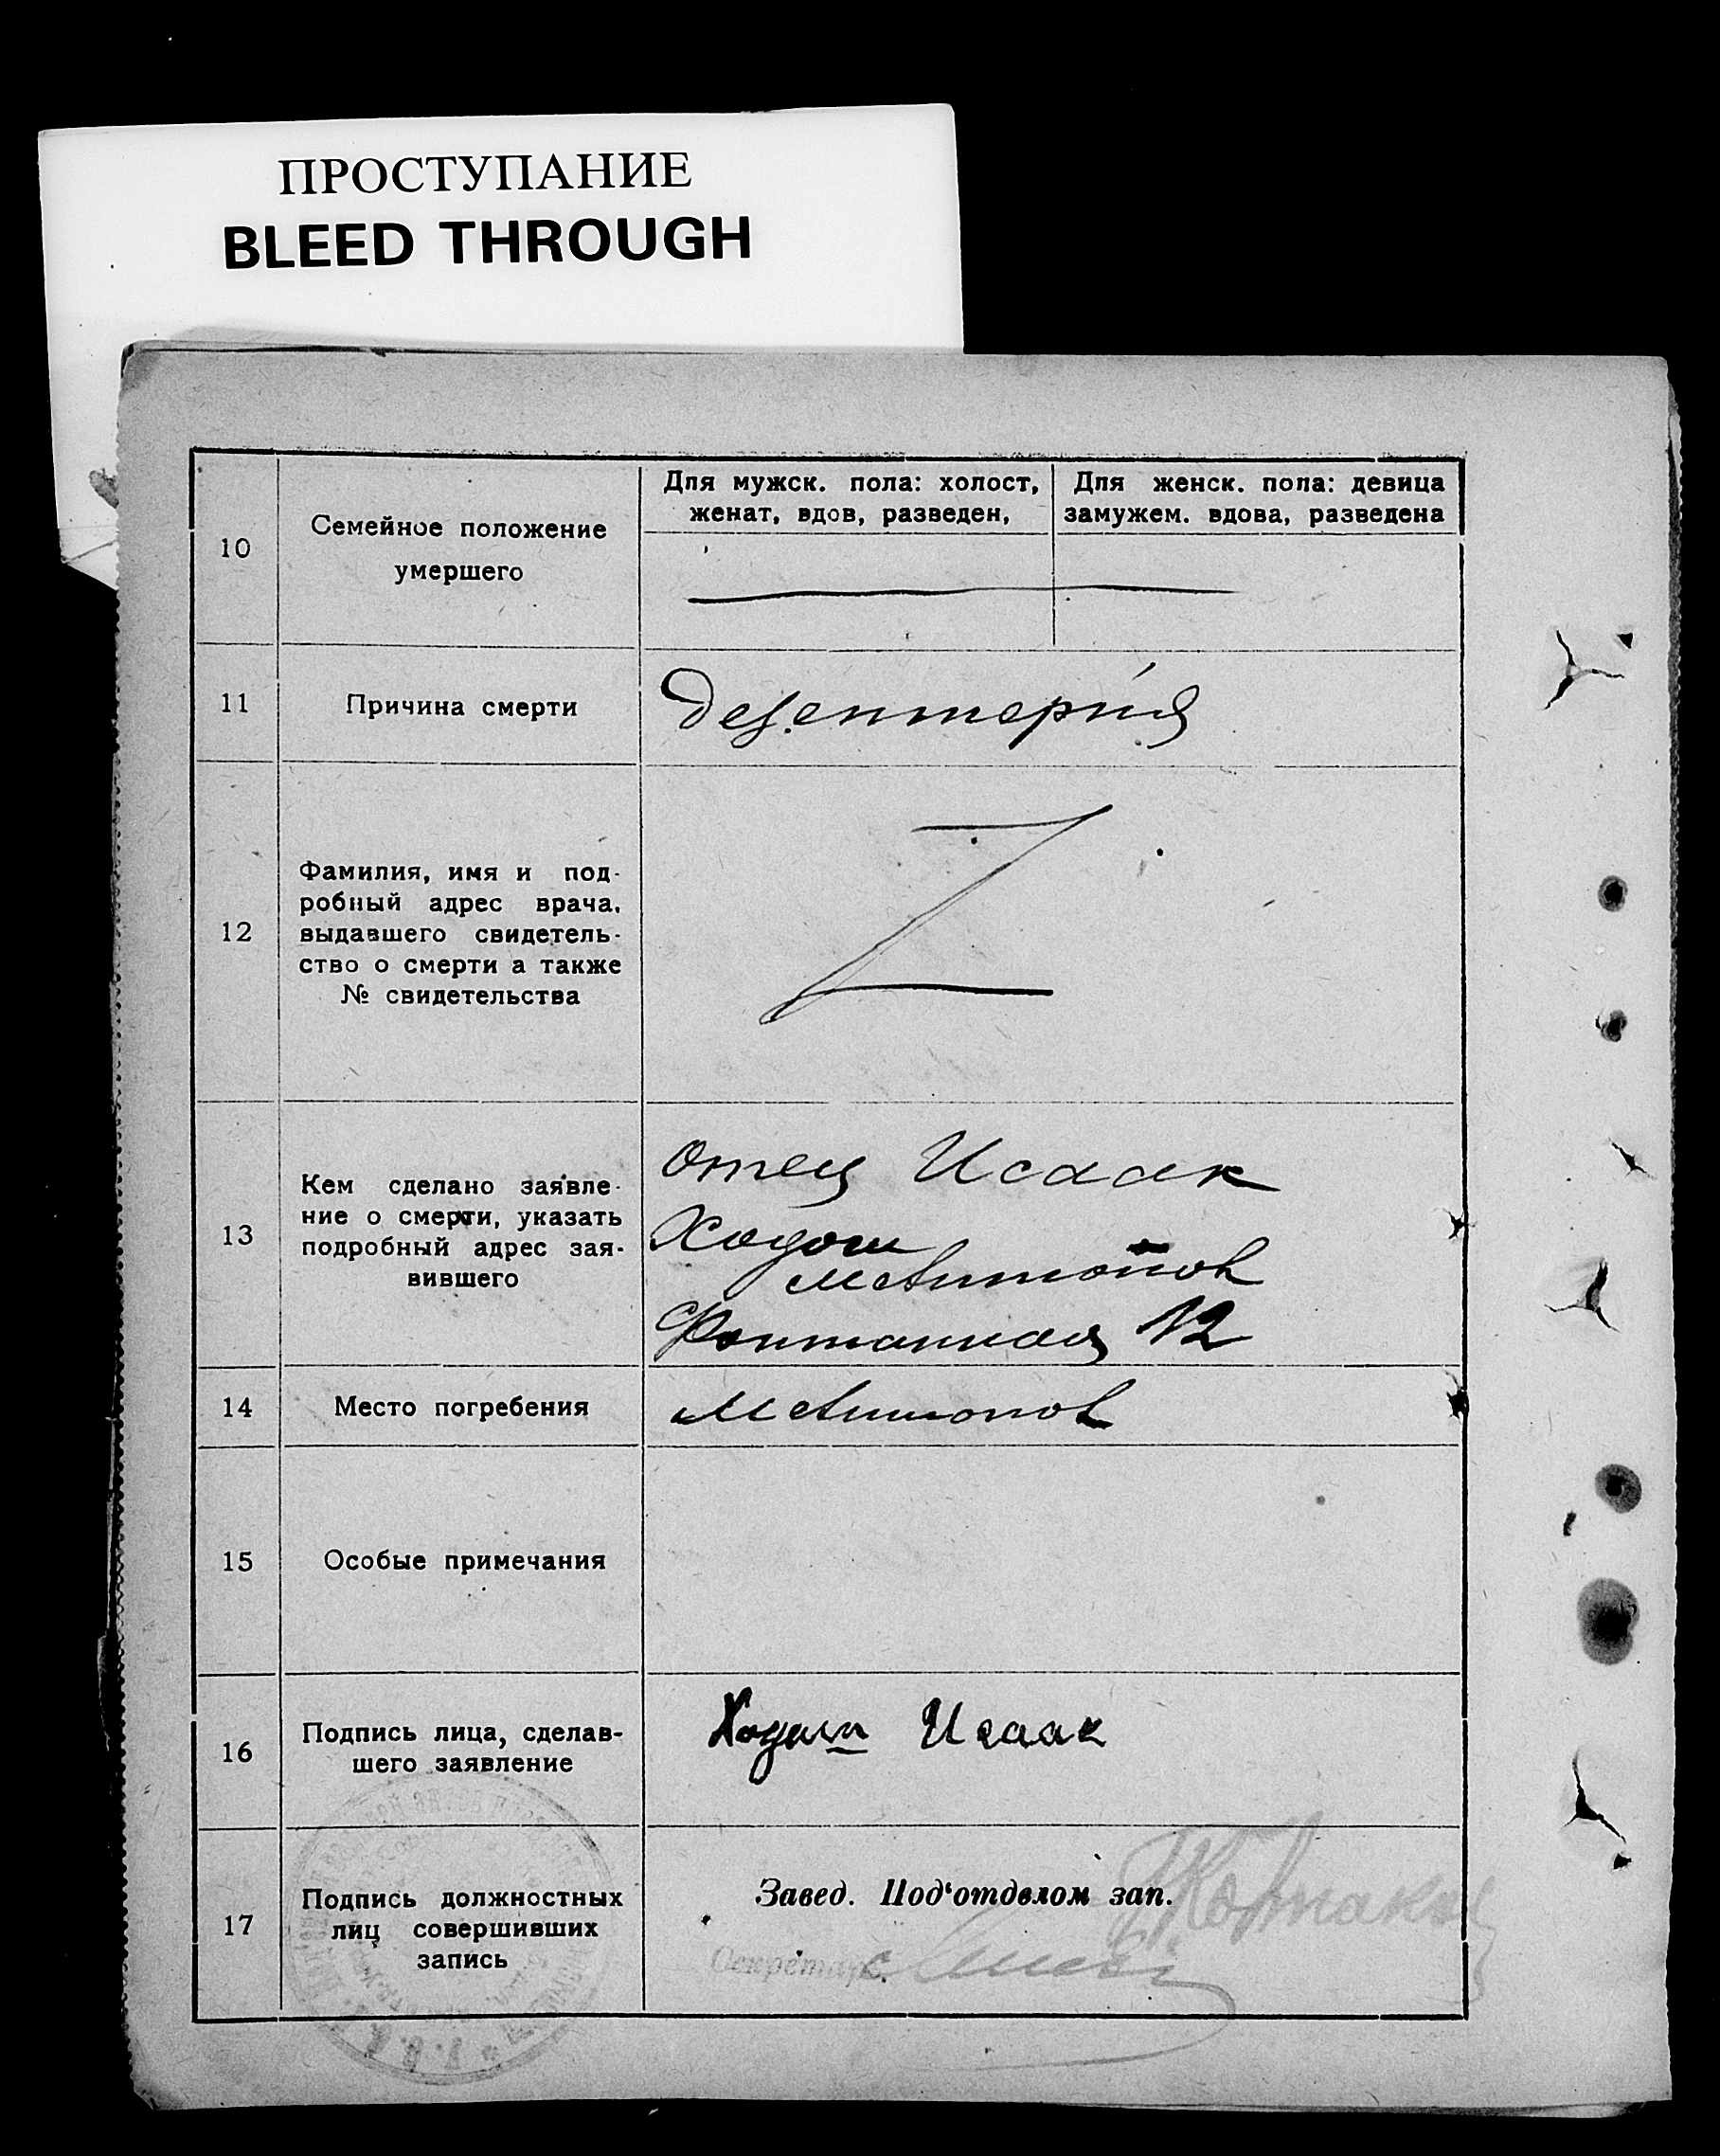 ПРОСТУПАНИЕ
BLEED THROUGH
10
Семейное положение
умершего
Для мужск. пола: холост,
женат, вдов, разведен,
Для женск. пола: девица
замужем. вдова, разведена
11
Причина смерти
Дезентерия
12
Фамилия, имя и под-
робный адрес врача,
выдавшего свидетель-
ство о смерти а также
№ свидетельства
13
Кем сделано заявле-
ние о смерти, указать
подробный адрес зая-
вившего
Отец Исаак
Ходош
М Антонов
Фонтанная 12
14
Место погребения
М Антонов
15
Особые примечания
16
Подпись лица, сделав-
шего заявление
Ходош Исаак
17
Подпись должностных
лиц совершивших
запись
Завед. Под'отделом зап.
Секретарь